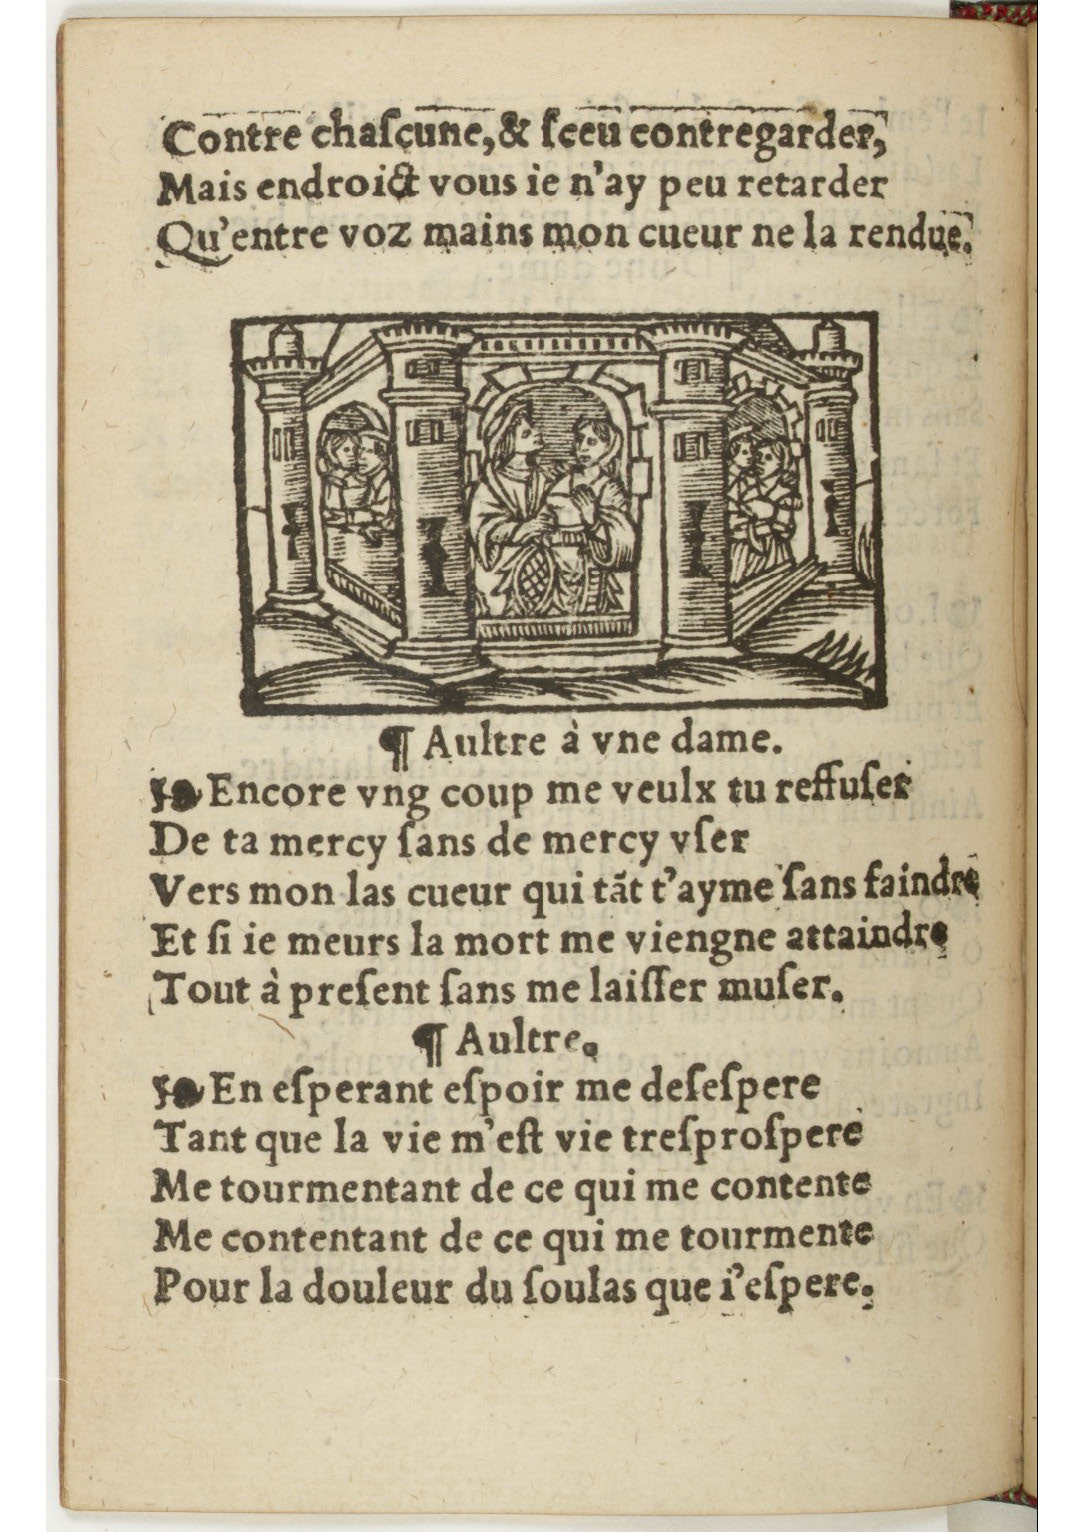 Contre chaſcune, & ſceu contregarder,
Mais endroict vous ie n'ay peu retarder
Qu'entre voz mains mon cueur ne la rendue.
¶ Aultre à vne dame.
❧ Encore vng coup me veulx tu reffuſer
De ta mercy ſans de mercy vſer
Vers mon las cueur qui tãt t'ayme ſans faindre
Et ſi ie meurs la mort me viengne attaindre
Tout à preſent ſans me laiſſer muſer.
¶ Aultre.
❧ En eſperant eſpoir me deſeſpere
Tant que la vie m'eſt vie treſproſpere
Me tourmentant de ce qui me contente
Me contentant de ce qui me tourmente
Pour la douleur du ſoulas que i'eſpere.